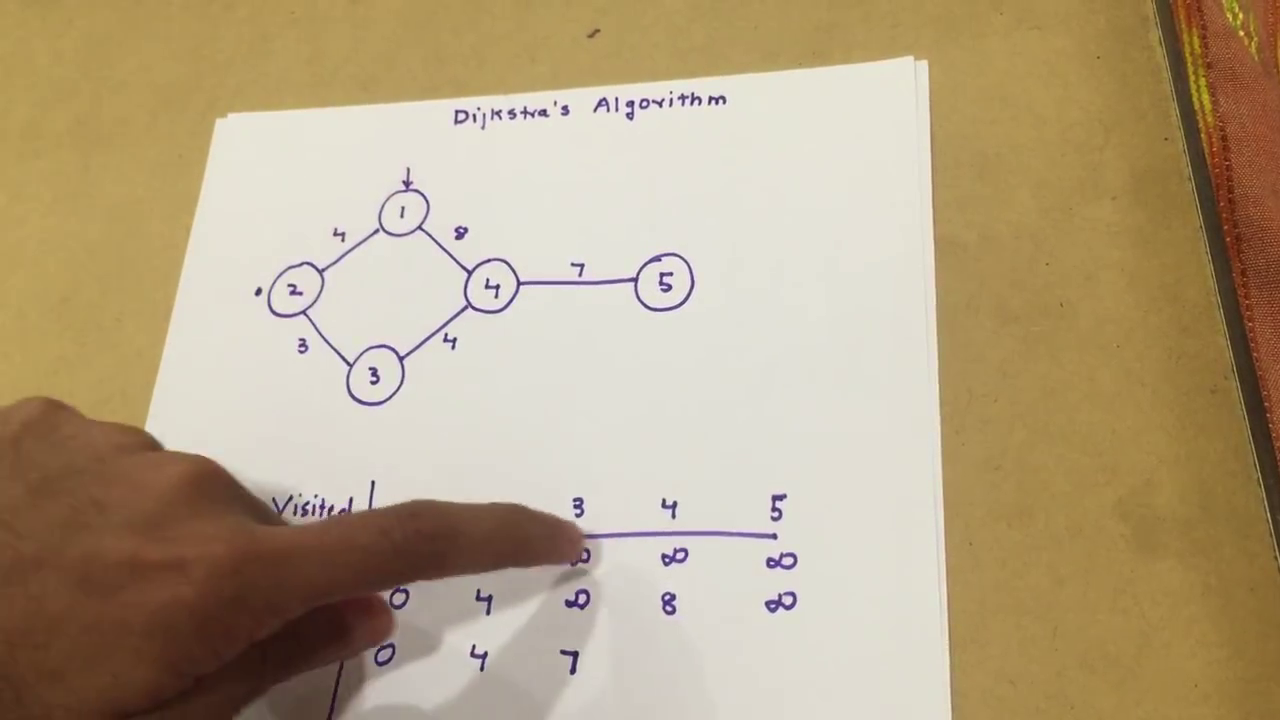 Dijkstra's Algorithm
1
4 8
2 4 7 5
3 4
3
Visited 3 4 5
∞ ∞ ∞
0 4 ∞ 8 ∞
0 4 7